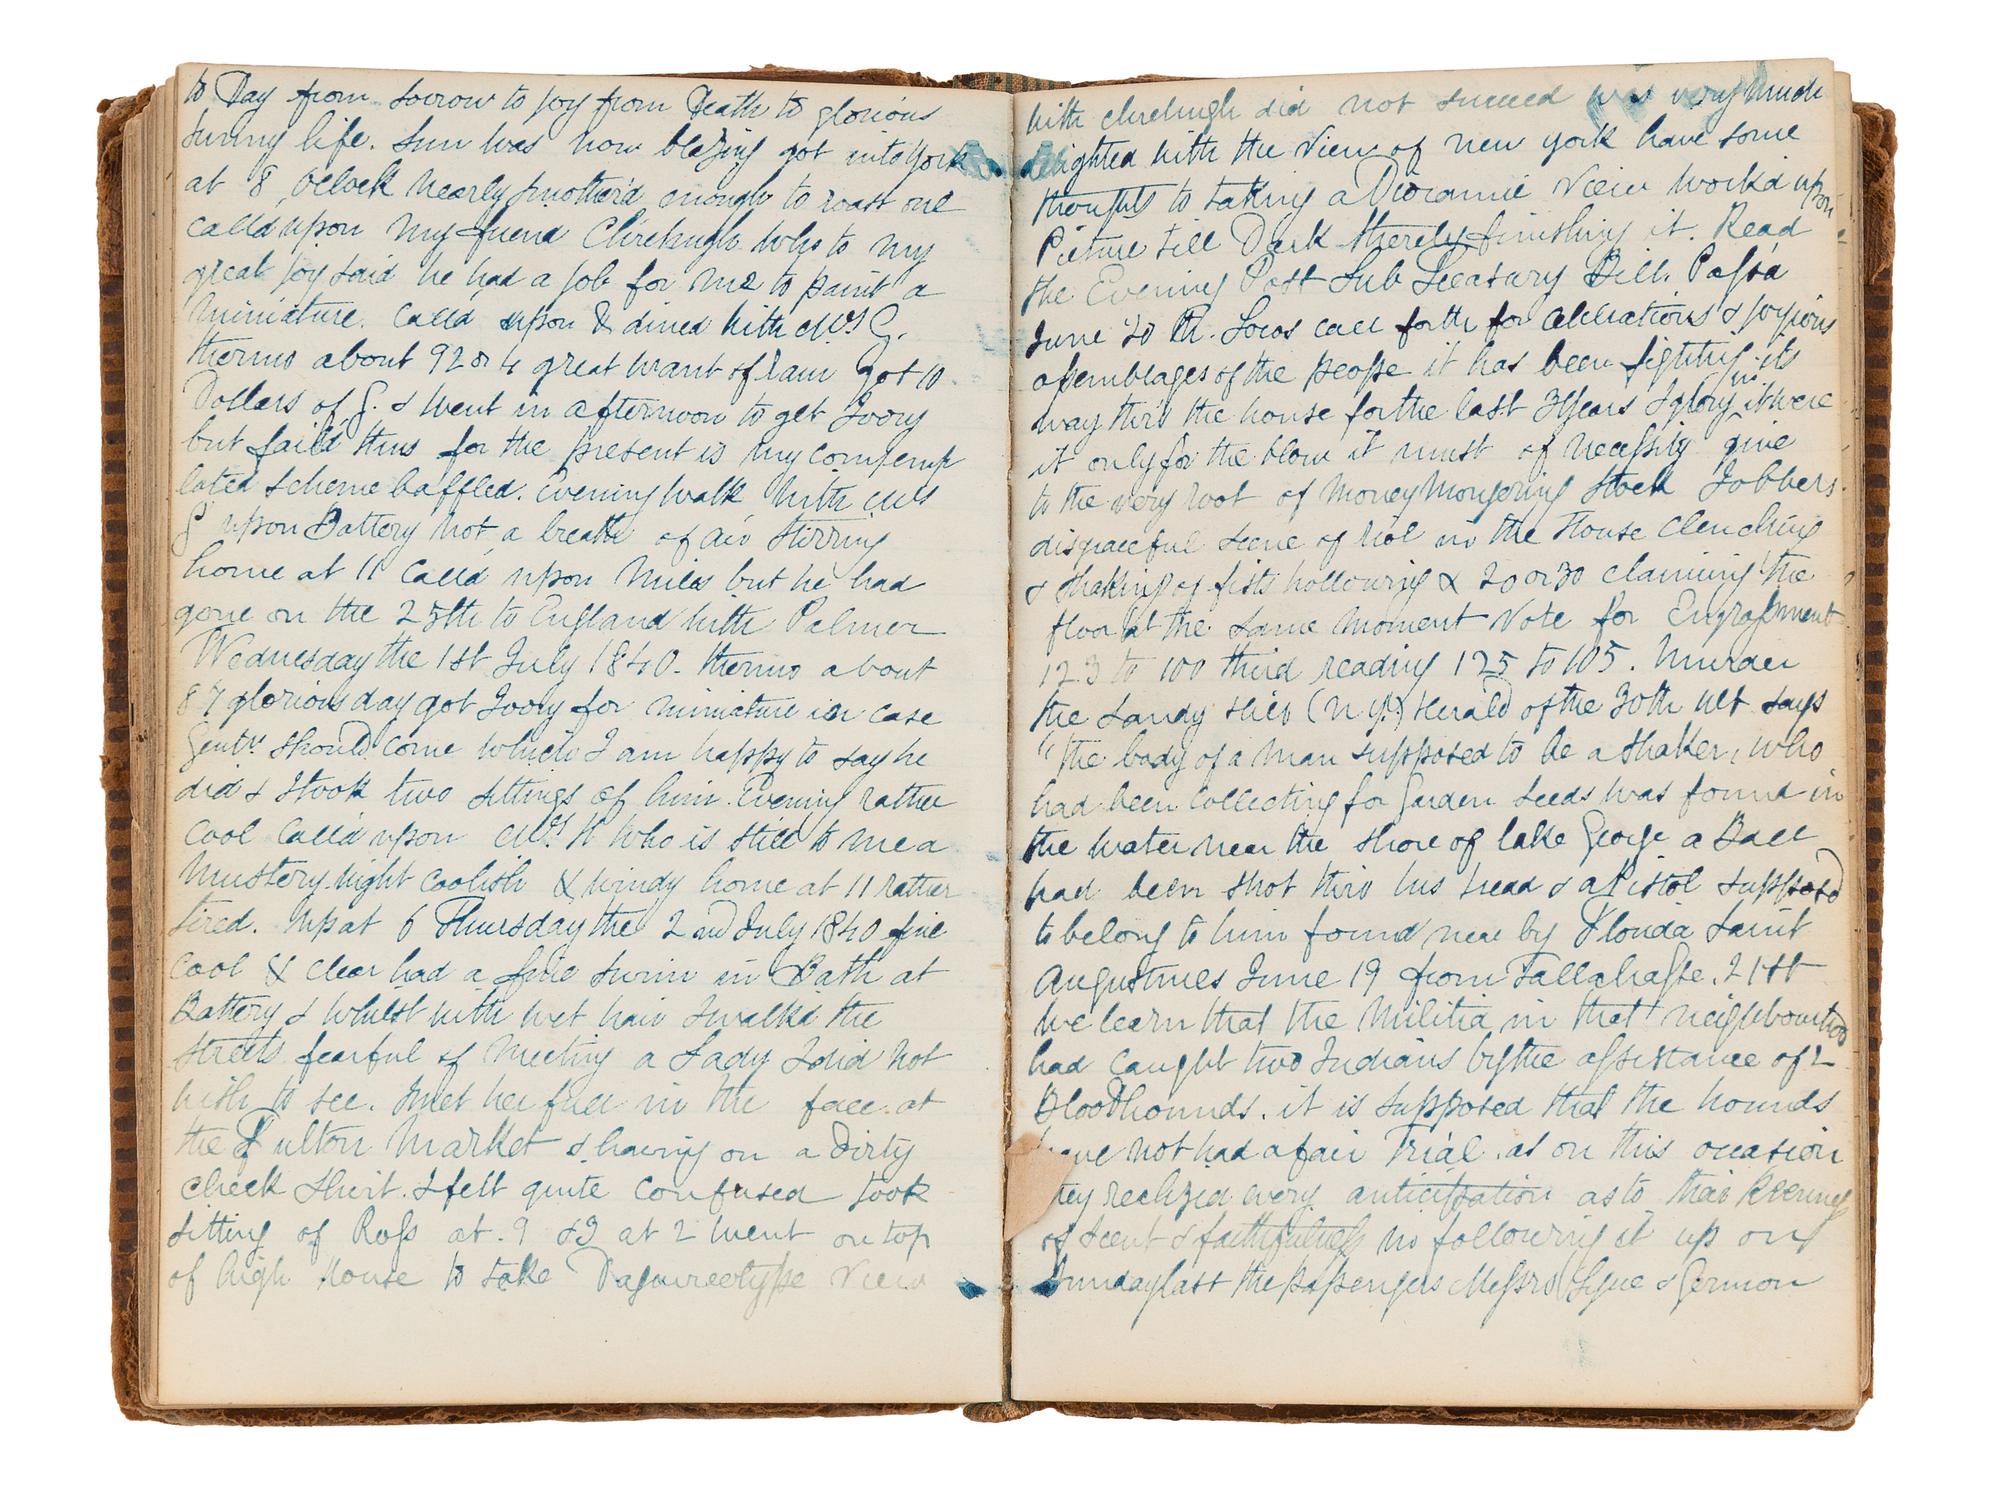 to Day from sorrow to joy from Death to glorious
sunny life. Sun was now blazing got into York
at 8 oClock nearly smother'd enough to roast one
call'd upon my friend Chirehugh who to my
great joy said he had a job for me to paint a
miniature. Call'd upon & dined with Mrs G.
thermo about 92 or 4 great want of rain got 10
Dollars of G. & went in afternoon to get Ivory
but fail'd thus for the present is my contemp
lated scheme baffled. Evening walk with Mrs
G upon Battery not a breath of air stirring
home at 11 call'd upon Miles but he had
gone on the 25th to England with Palmer
Wednesday the 1st July 1840. thermo about
87 glorious day got Ivory for miniature in case
Gentn. should come which I am happy to say he
did & I took two sittings of him. Evening rather
cool call'd upon Mrs. H who is still to me a
Mustery. night coolish & windy home at 11 rather
tired. Up at 6 Thursday the 2nd July 1840 fine
cool & clear had a fine swim in Bath at
Battery & whilst with wet hair I walk'd the
streets fearful of meeting a Lady I did not
wish to see. I met her full in the face at
the Fulton Market & having on a Dirty
check shirt. I felt quite confused took
sitting of Ross at 9 & at 2 went on top
of high House to take Daguereotype View
with did not succeed was very much
delighted with the View of new york have some
thoughts to taking a Dioramic View work'd upon
Picture till Dark therely finishing it. Read
the Evening Post Sub Treasury Bill. Pass'd
June 30th. Locos call forth for cellerations & joyious
assemblages of the people it has been fighting its
way thro the house for the last 3 years I glory in it were
it only for the blow it must of necessity give
to the very root of Money Mongering Stock Jobbers.
disgraceful scene of riot in the House Clenching
& shaking of fists hollowing & 20 or 30 claiming the
floor at the same moment Vote for Engrossment
123 to 100 third reading 125 to 105. Murder
the Sandy Hill (N.Y.) Herald of the 30th ult says
"the body of a man supposed to be a shaker, who
had been collecting for Garden seeds was found in
the water near the shore of lake George a Ball
had been shot thro his head & a Pistol supposed
to belong to him found near by Florida Saint
Augustines June 19 from Tallahasse. 21st
we learn that the Militia in that neighbourhood
had caught two Indians by the assistance of 2
Bloodhounds. it is supposed that the hounds
have not had a fair Trial. as on this occasion
they realized every anticipation as to their keening
of scent & faithfulness in following it up on
Sunday last the passengers Messrs Ligue & Germon